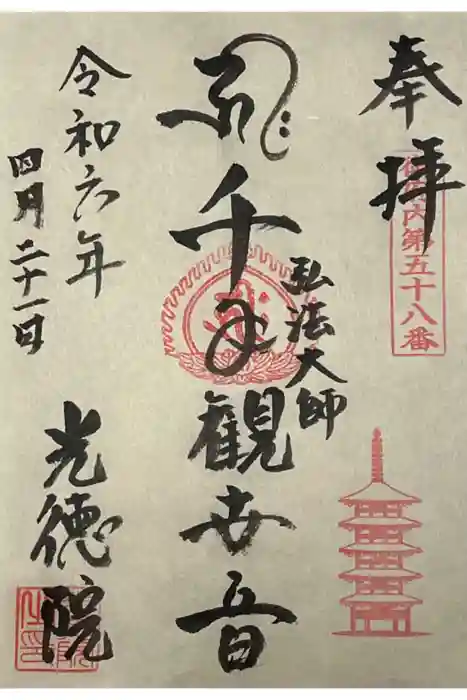 奉拝
御府内第五十八番
千手観世音
弘法大師
令和六年
四月二十一日
光徳院